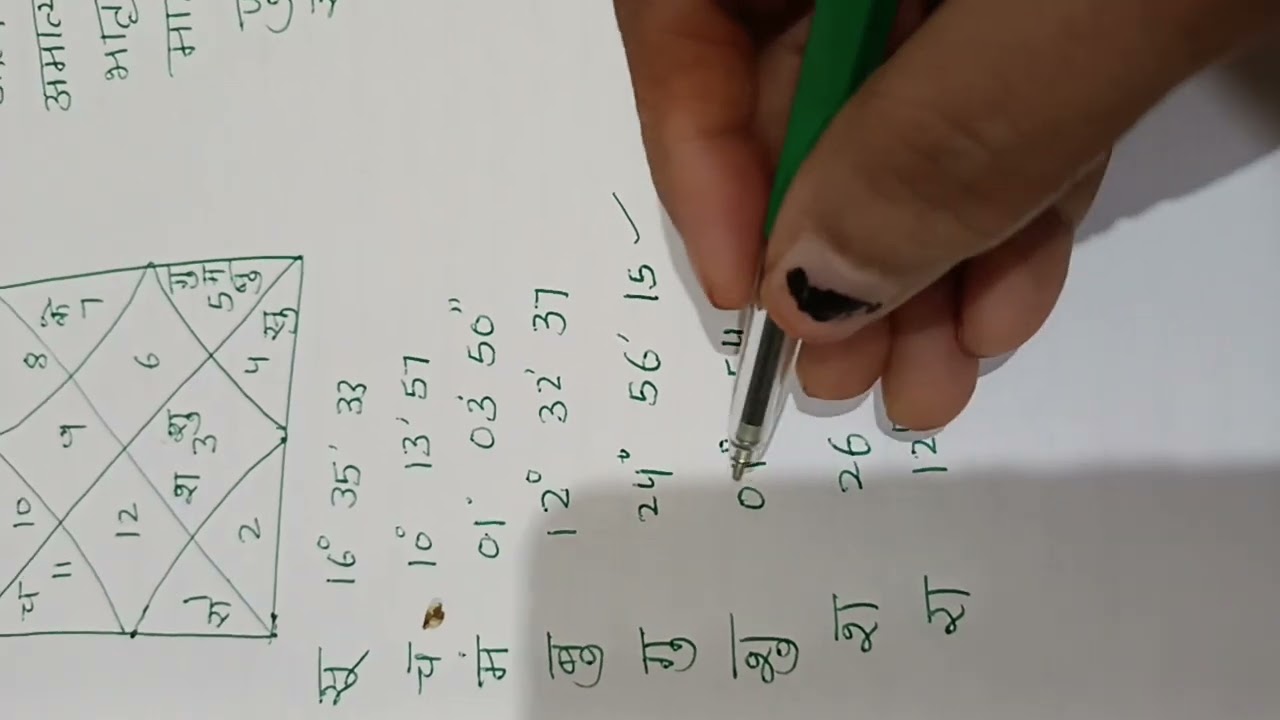 अमात्य
के
7
8
6
गु
म
बु
5
4
सू
9
शु
3
श
10
12
2
च
11
रा
सू 16° 35' 33
च 10° 13' 57
मं 01° 03' 50"
बु 12° 32' 37
गु 24° 56' 15 ✓
शु
श 26
रा 12